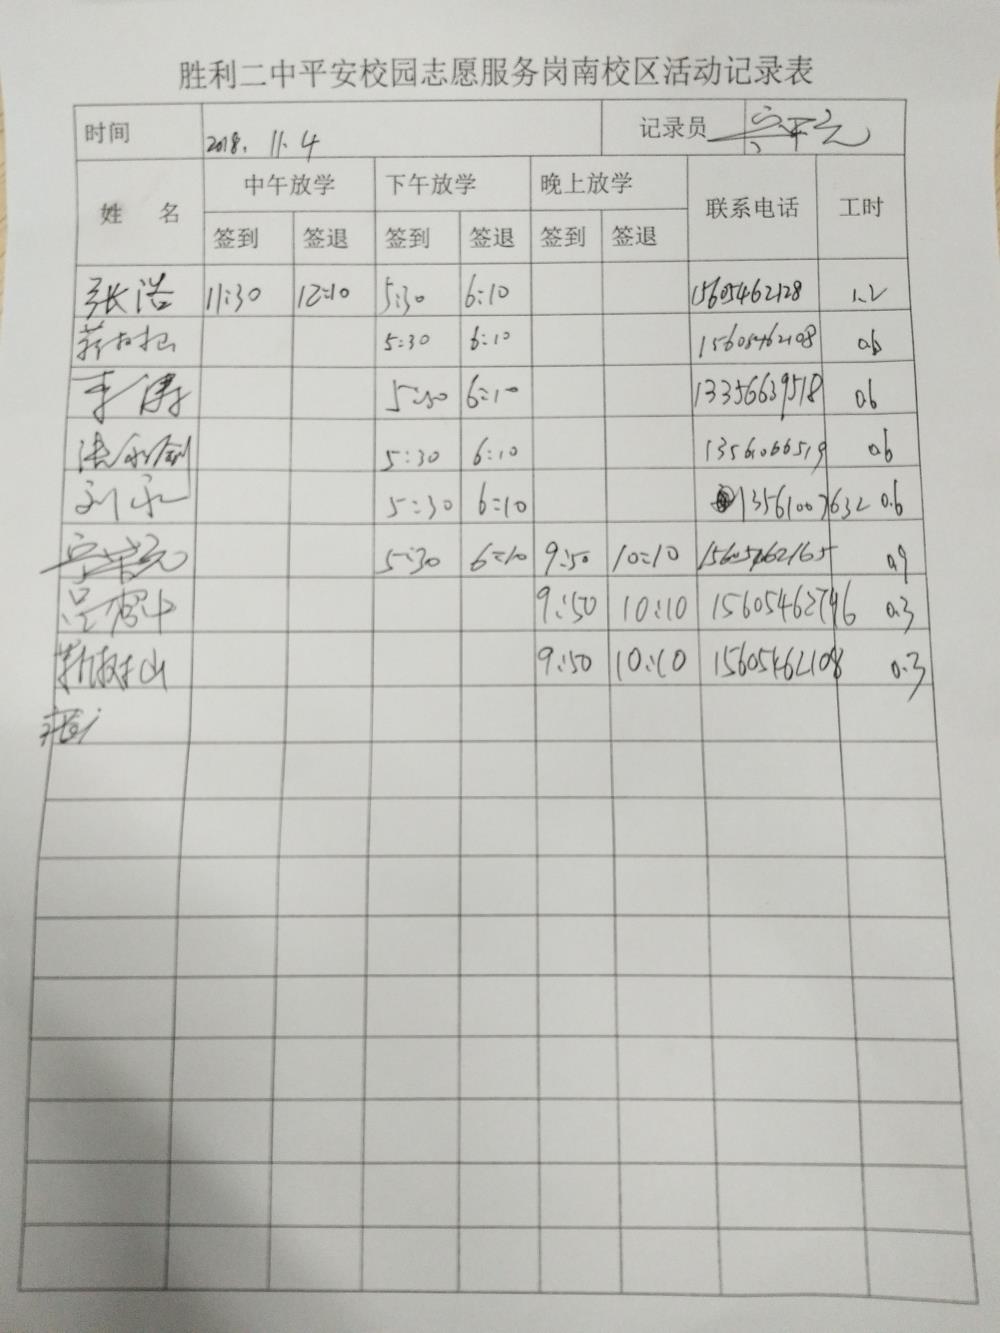 胜利二中平安校园志愿服务岗南校区活动记录表
时间 2018.11.4 记录员
姓 名 中午放学 下午放学 晚上放学 联系电话 工时
签到 签退 签到 签退 签到 签退
张浩 11:30 12:10 5:30 6:10 15605462128 1.2
5:30 6:10 15605462108 0.6
李涛 5:30 6:10 13356639518 0.6
5:30 6:10 13561066519 0.6
刘永 5:30 6:10 13561007632 0.6
5:30 6:10 9:50 10:10 15605462165 0.9
9:50 10:10 15605462746 0.3
靳树山 9:50 10:10 15605462108 0.3